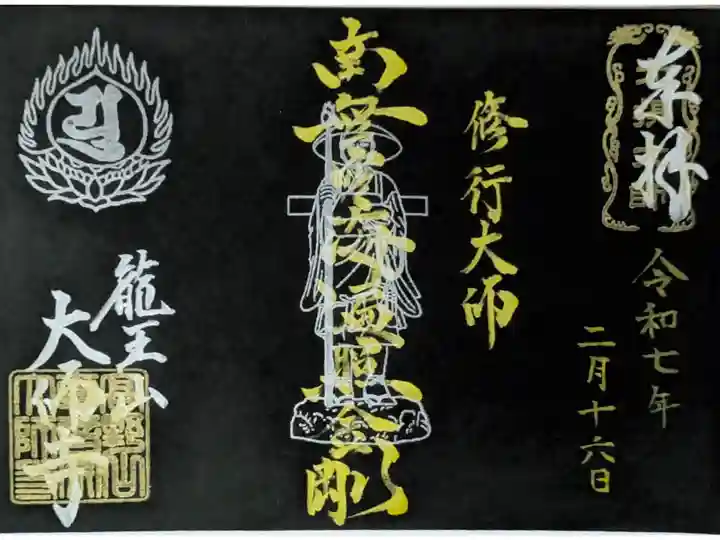 奉拝
令和七年
二月十六日
修行大師
南無大師遍照金剛
龍王山
大師寺